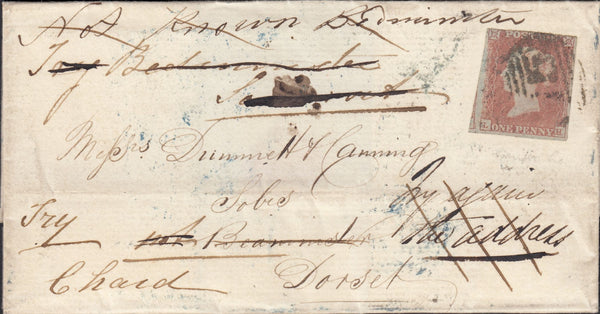 Not Known Bedminster
Try Bedminster
POSTAGE
ONE PENNY
Messrs Dummett & Canning
Sobrs
Try again
Try
not Beaminster
the address
Chard
Dorset